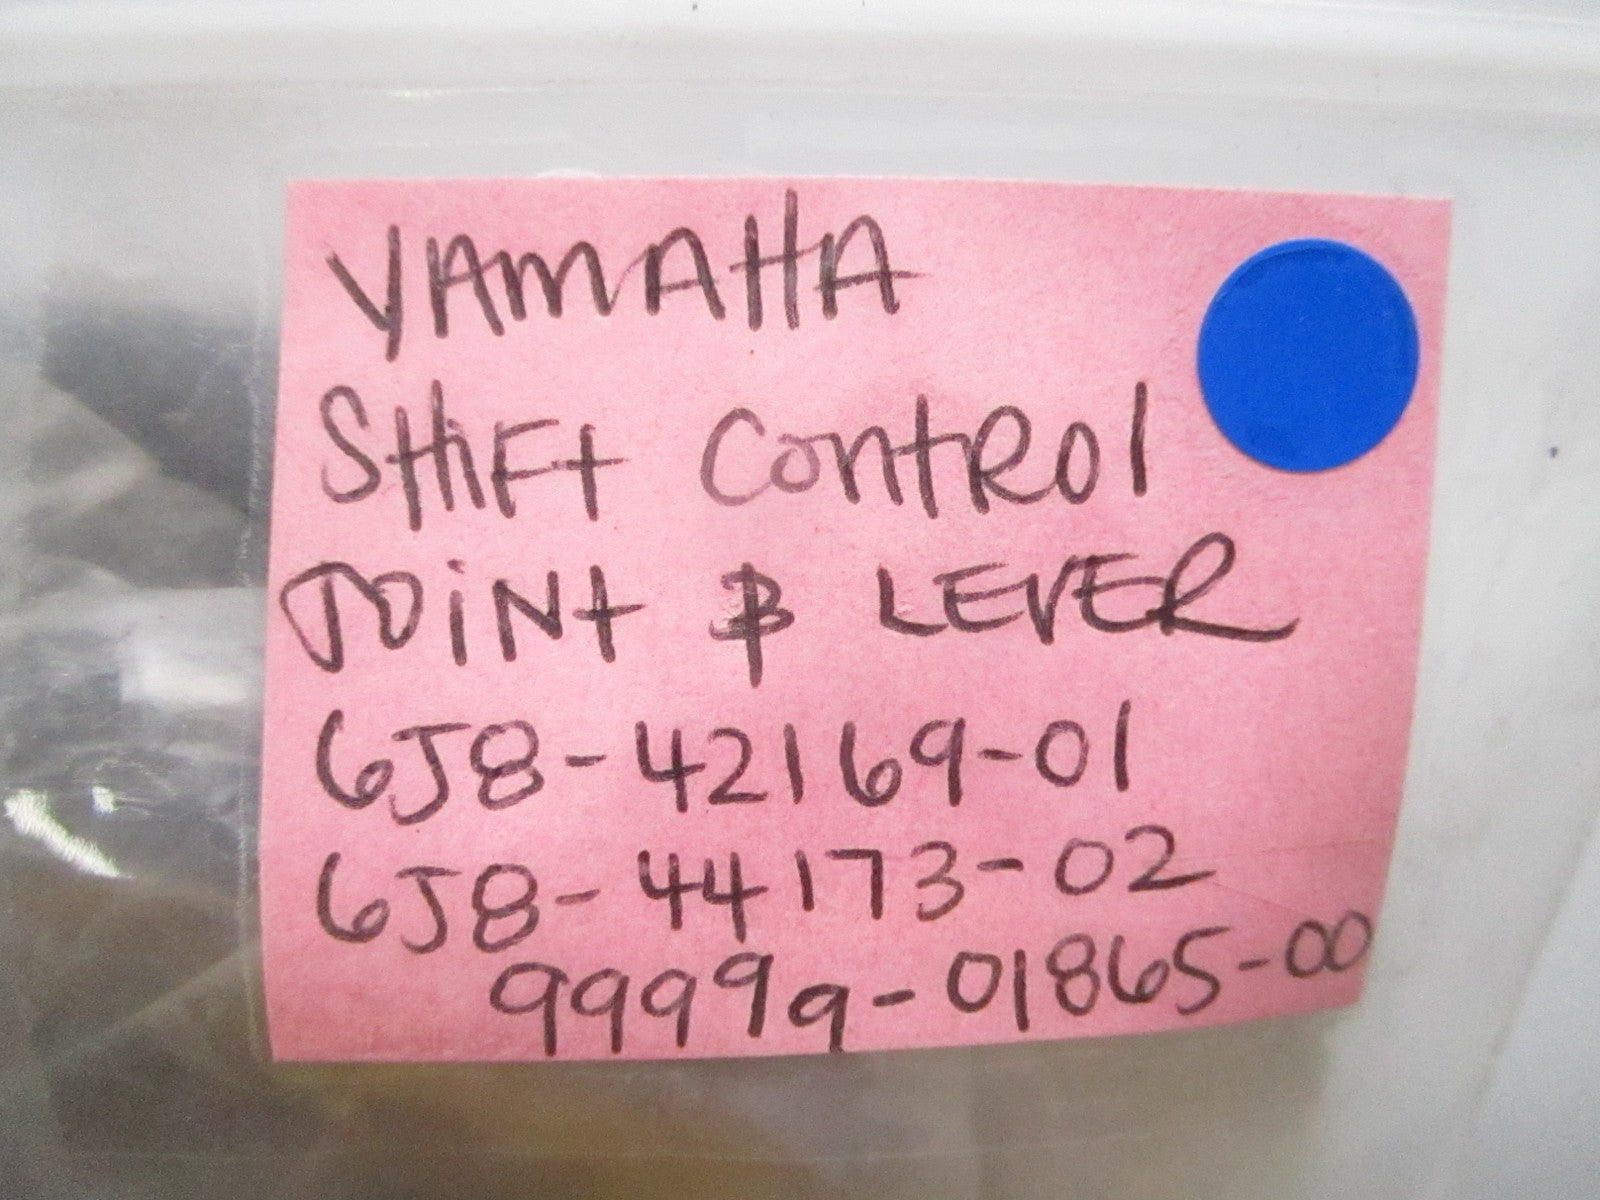 YAMAHA
SHIFT CONTROL
JOINT & LEVER
6J8-42169-01
6J8-44173-02
99999-01865-00